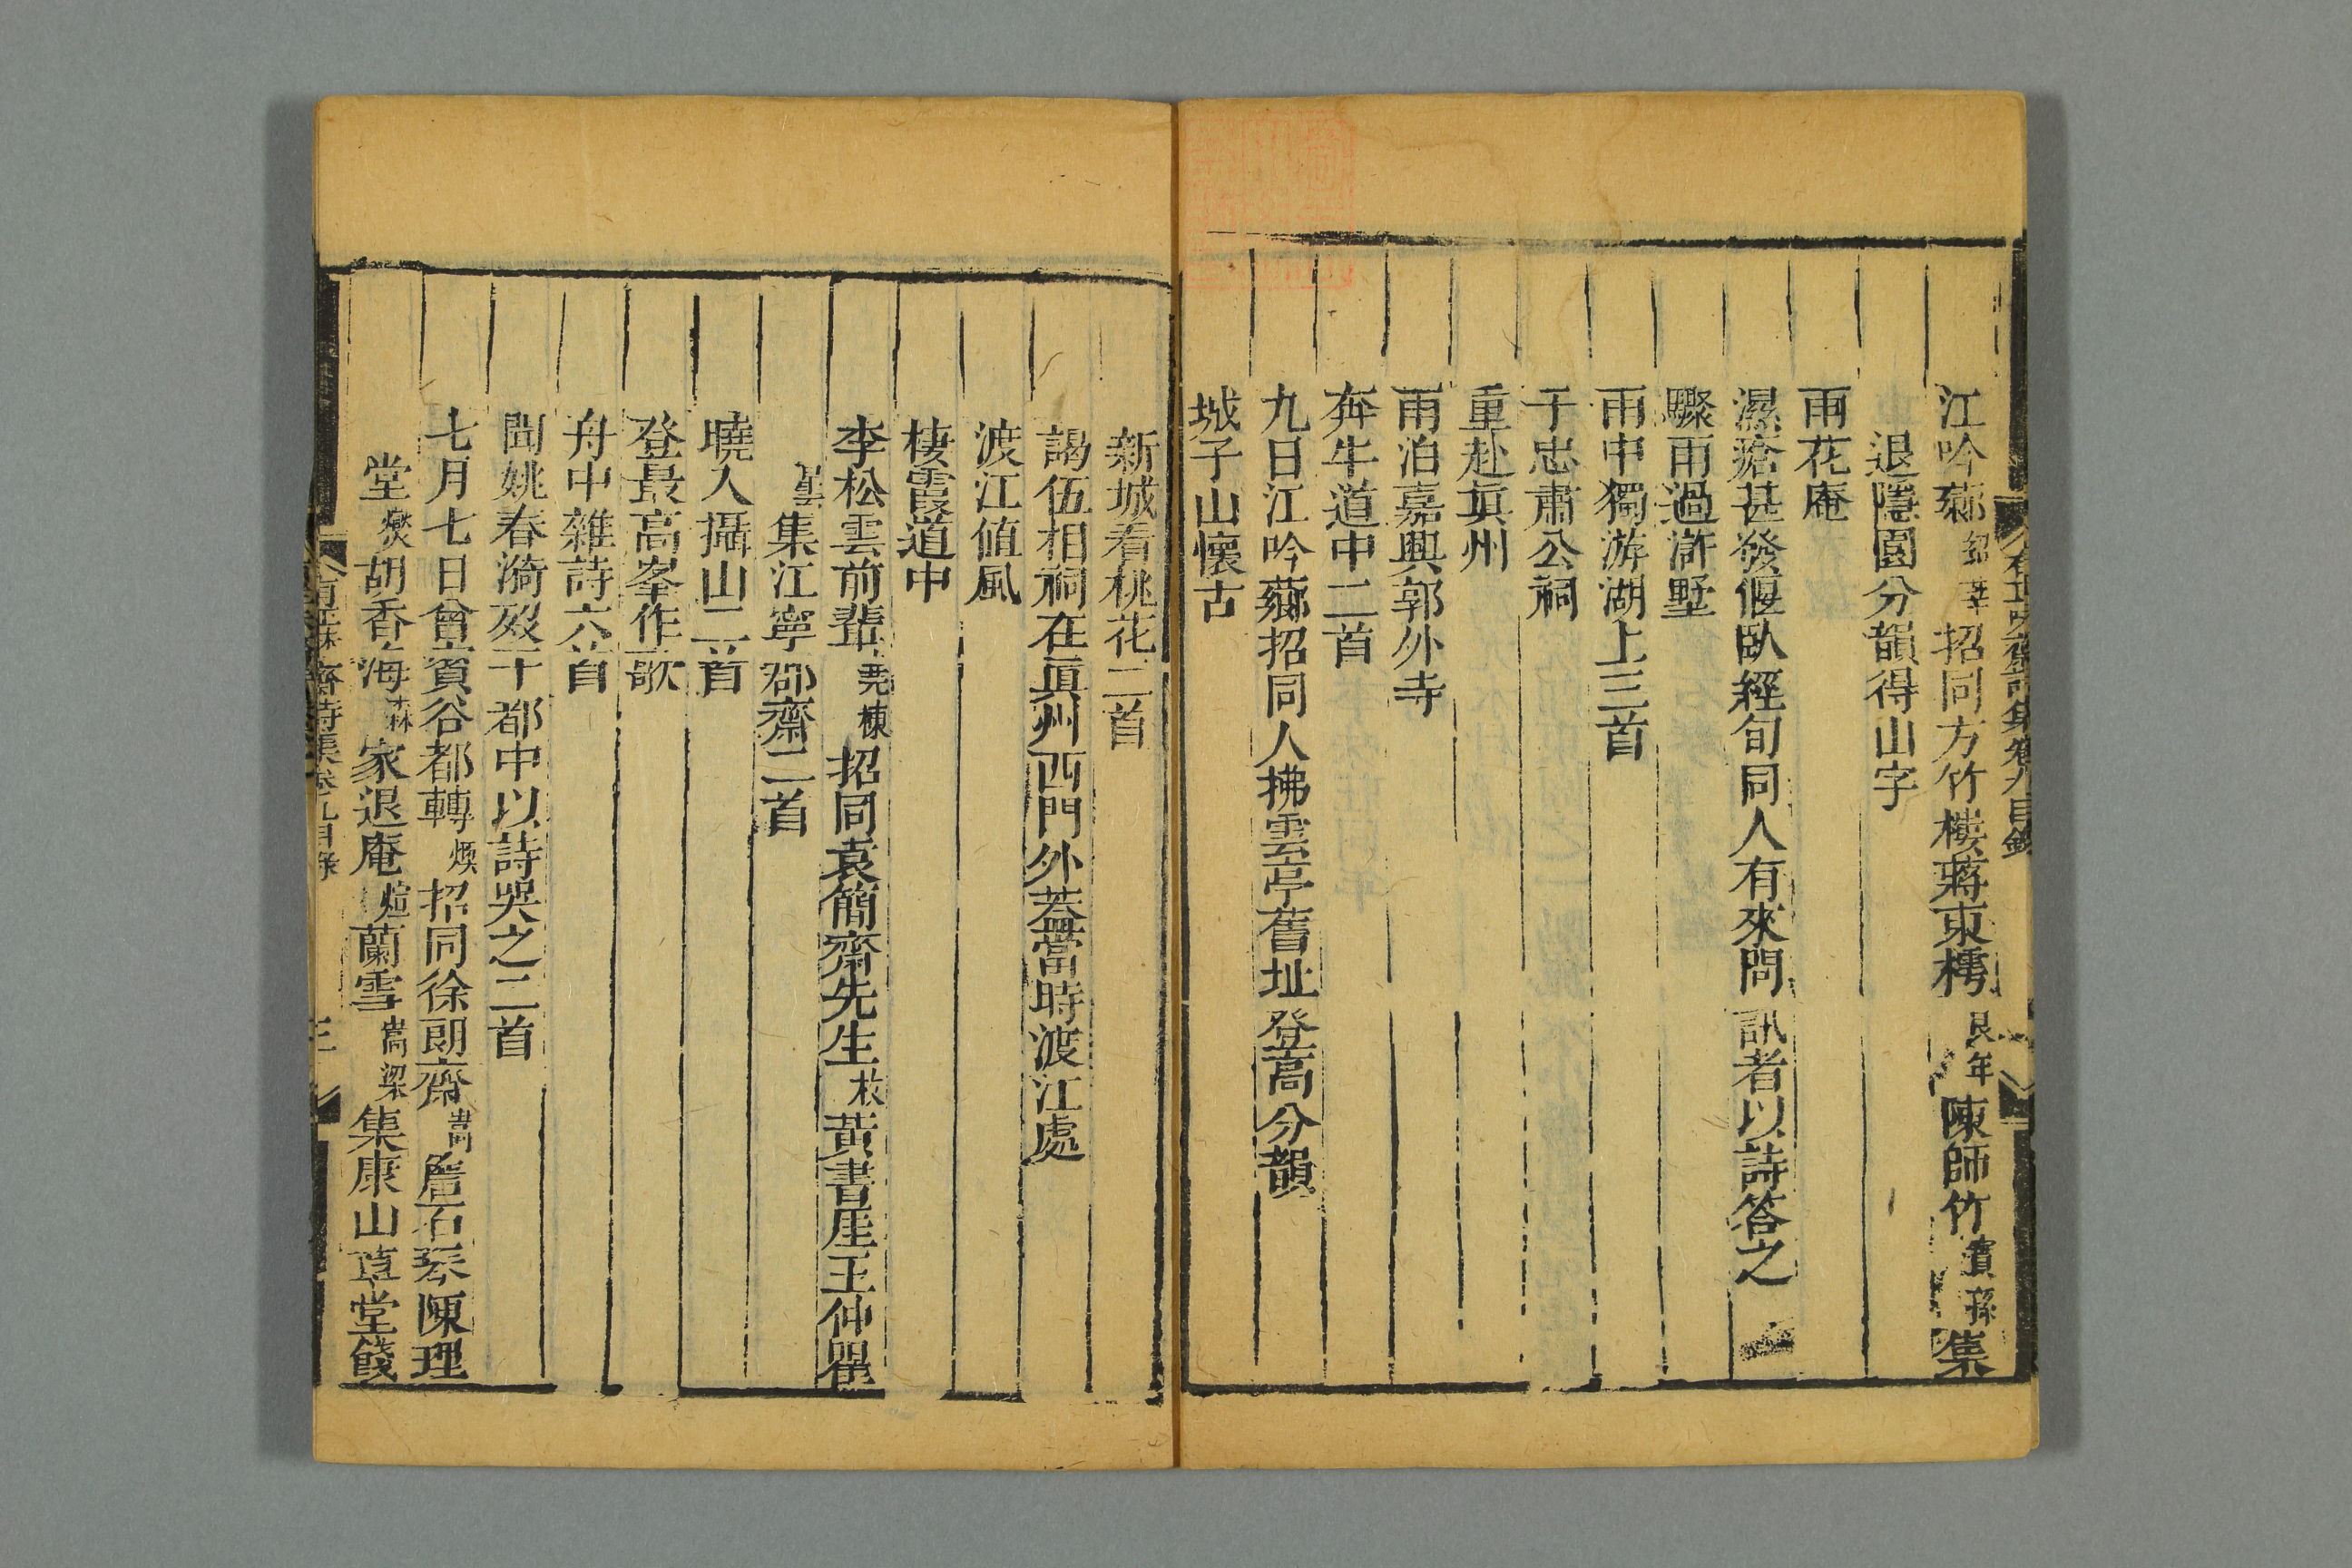 江吟薌紹莘招同方竹樓蔣東橋良年陳師竹寶孫集
退隱園分韻得山字
雨花庵
濕瘡甚發偃臥經旬同人有來問訊者以詩答之
驟雨過滸墅
雨中獨游湖上三首
于忠肅公祠
重赴眞州
雨泊嘉興郭外寺
奔牛道中二首
九日江吟薌招同人拂雲亭舊址登高分韻
城子山懷古
新城看桃花二首
謁伍相祠在眞州西門外蓋當時渡江處
渡江值風
棲霞道中
李松雲前輩堯棟招同袁簡齋先生枚黃書厓王仲瞿
曇集江寧郡齋二首
曉入攝山二首
登最高峯作歌
舟中雜詩六首
聞姚春漪歿于都中以詩哭之二首
七月七日曾賓谷都轉燠招同徐朗齋嵩詹石琴陳理
堂燮胡香海森家退庵煊蘭雪嵩梁集康山草堂餞
有正味齋詩集卷九目錄
三